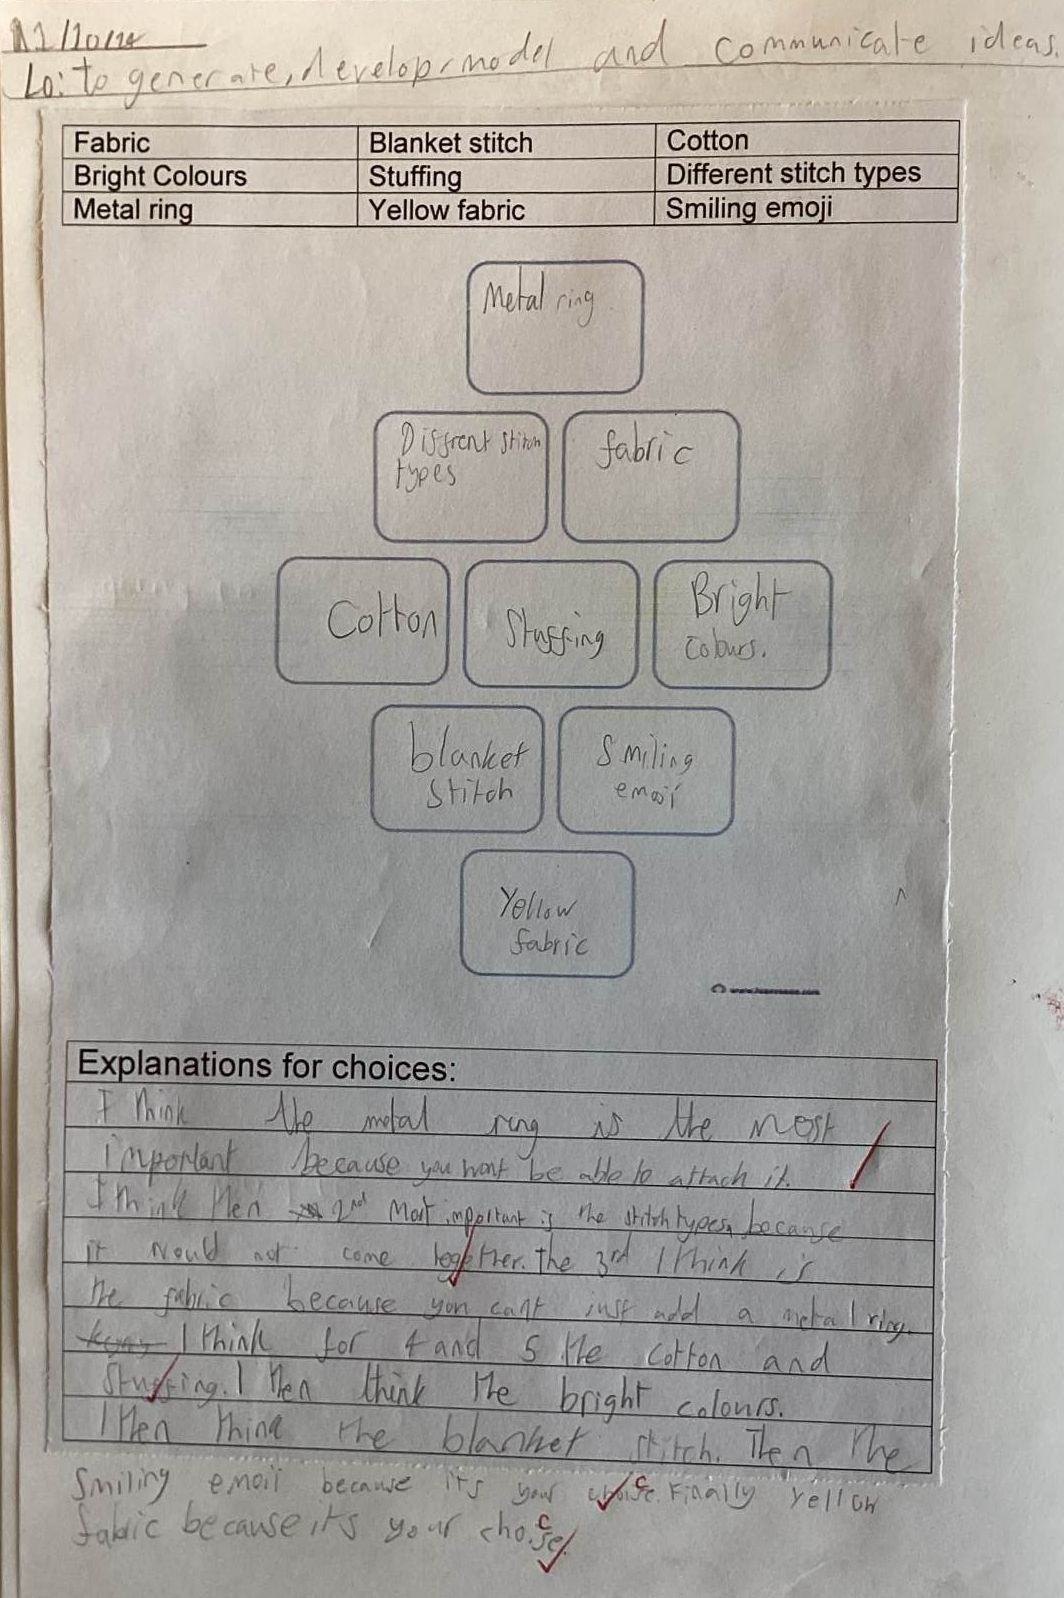 11/10/
Lo: to generate, develop, model and communicate ideas.
Fabric Blanket stitch Cotton
Bright Colours Stuffing Different stitch types
Metal ring Yellow fabric Smiling emoji
Metal ring
Diffrent stitch
types
fabric
Cotton
Stuffing
Bright
colours.
blanket
stitch
Smiling
emoji
Yellow
fabric
Explanations for choices:
I think the metal ring is the most
important because you wont be able to attach it.
I think then 2nd most important is the stitch types, because
it would not come together. the 3rd I think is
the fabric because you can't just add a metal ring.
I think for 4 and 5 the cotton and
stuffing. I then think the bright colours.
I then think the blanket stitch. Then the
Smiling emoji because it's your choise. Finally yellow
fabric because it's your choise.